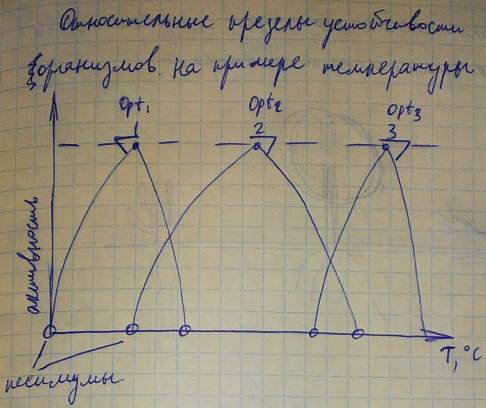 Относительные пределы устойчивости
организмов на примере температуры
Opt₁
Opt₂
Opt₃
1
2
3
активность
T, °C
пессимумы.